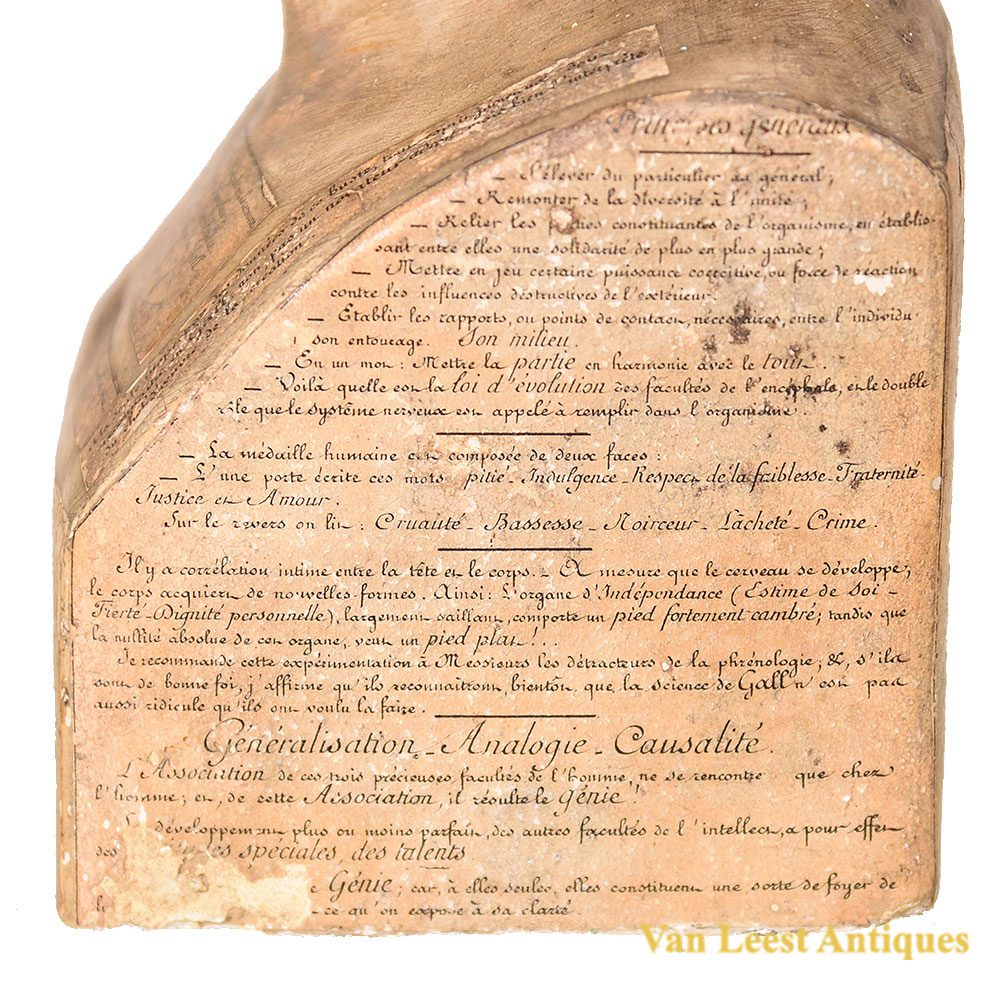 Principes généraux
— S'élever du particulier au général;
— Remonter de la diversité à l'unité;
— Relier les parties constituantes de l'organisme, en établis
sant entre elles une solidarité de plus en plus grande;
— Mettre en jeu certaine puissance coercitive, ou force de réaction
contre les influences destructives de l'extérieur.
— Etablir les rapports, ou points de contact, nécessaires, entre l'individu
son entourage. Son milieu.
— En un mot: Mettre la partie en harmonie avec le tout.
— Voilà quelle est la loi d'évolution des facultés de l'encéphale, et le double
rôle que le système nerveux est appelé à remplir dans l'organisme.
— La médaille humaine est composée de deux faces:
— L'une porte écrite ces mots pitié - Indulgence - Respect de la faiblesse - Fraternité -
Justice et Amour.
Sur le revers on lit: Cruauté - Bassesse - Noirceur - Lâcheté - Crime.
Il y a corrélation intime entre la tête et le corps. - A mesure que le cerveau se développe,
le corps acquiert de nouvelles formes. Ainsi: L'organe d'Indépendance (Estime de Soi -
Fierté - Dignité personnelle), largement saillant, comporte un pied fortement cambré; tandis que
la nullité absolue de cet organe, veut un pied plat!..
Je recommande cette expérimentation à Messieurs les détracteurs de la phrénologie; &, s'ils
sont de bonne foi, j'affirme qu'ils reconnaitront, bientôt, que la science de Gall n'est pas
aussi ridicule qu'ils ont voulu la faire.
Généralisation - Analogie - Causalité.
L'Association de ces trois précieuses facultés de l'homme, ne se rencontre que chez
l'homme; et, de cette Association, il résulte le Génie!
développement plus ou moins parfait, des autres facultés de l'intellect, a pour effet
des spéciales, des talents
Génie; car, à elles seules, elles constituent une sorte de foyer de
ce qu'on expose à sa clarté
de ce buste, tout
novateur adroit bien d'interprète
Van Leest Antiques